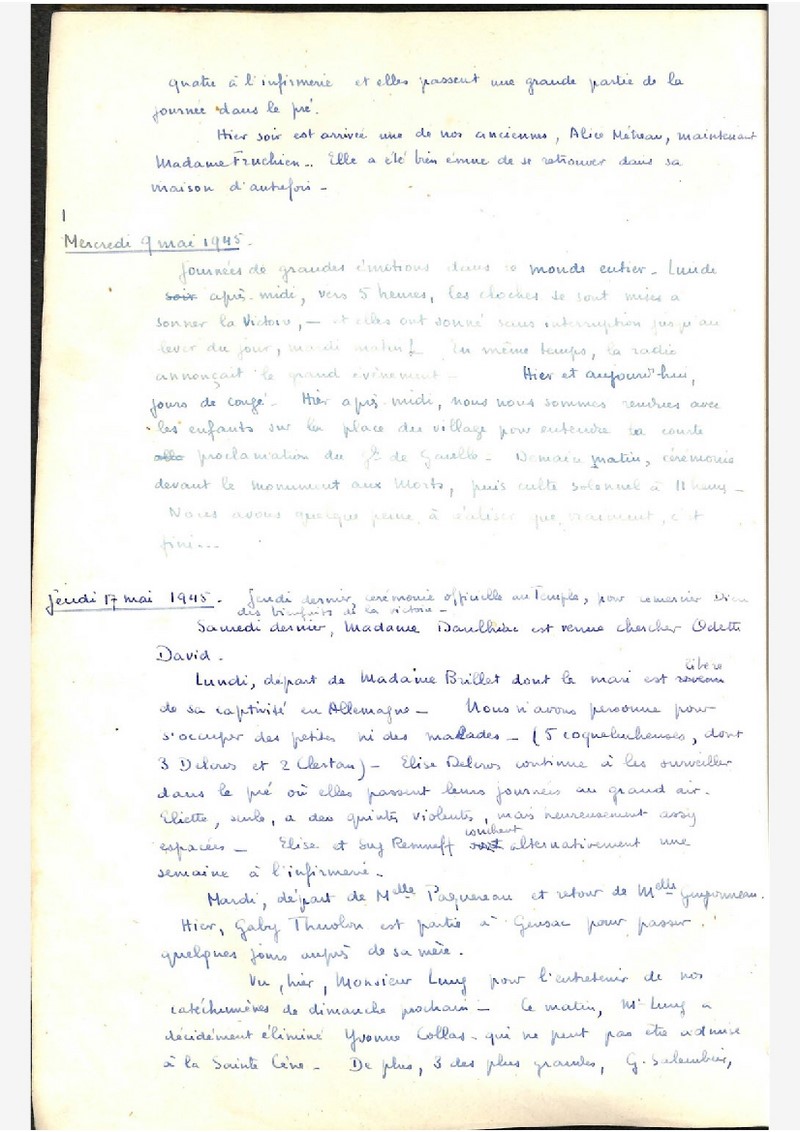 quatre à l'infirmerie et elles passent une grande partie de la
journée dans le pré.
Hier soir est arrivée une de nos anciennes, Alice Méneau, maintenant
Madame Fruchien.. Elle a été bien émue de se retrouver dans sa
maison d'autrefois -
Mercredi 9 mai 1945.
Journées de grandes émotions dans le monde entier - Lundi
soir après-midi, vers 5 heures, les cloches se sont mises à
sonner la victoire, - et elles ont sonné sans interruption jusqu'au
lever du jour, mardi matin! En même temps, la radio
annonçait le grand évènement - Hier et aujourd'hui,
jours de congé - Hier après-midi, nous nous sommes rendues avec
les enfants sur la place du village pour entendre la courte
allo proclamation du Gl de Gaulle - Demain matin, cérémonie
devant le monument aux Morts, puis culte solennel à 11 heures -
Nous avons quelque peine à réaliser que vraiment, c'est
fini...
Jeudi 17 mai 1945. Jeudi dernier, cérémonie officielle au Temple, pour remercier Dieu
des bienfaits de la victoire -
Samedi dernier, Madame Daulhiac est venue chercher Odette
David.
libéré
Lundi, départ de Madame Brillet dont le mari est revenu
de sa captivité en Allemagne - Nous n'avons personne pour
s'occuper des petites ni des malades - (5 coquelucheuses, dont
3 Delcros et 2 Clertan) - Elise Delcros continue à les surveiller
dans le pré où elles passent leurs journées au grand air.
Eliette, seule, a des quintes violentes, mais heureusement assez
couchent
espacées - Elise et Suz Remneff sont alternativement une
semaine à l'infirmerie.
Mardi, départ de Melle Paquereau et retour de Melle Guyonneau.
Hier, Gaby Thuolon est partie à Gensac pour passer
quelques jours auprès de sa mère.
Vu, hier, Monsieur Lung pour l'entretenir de nos
catéchumènes de dimanche prochain - Ce matin, Mr Lung a
décidément éliminé Yvonne Collas qui ne peut pas être admise
à la Sainte Cène - De plus, 3 des plus grandes, G. Salembier,